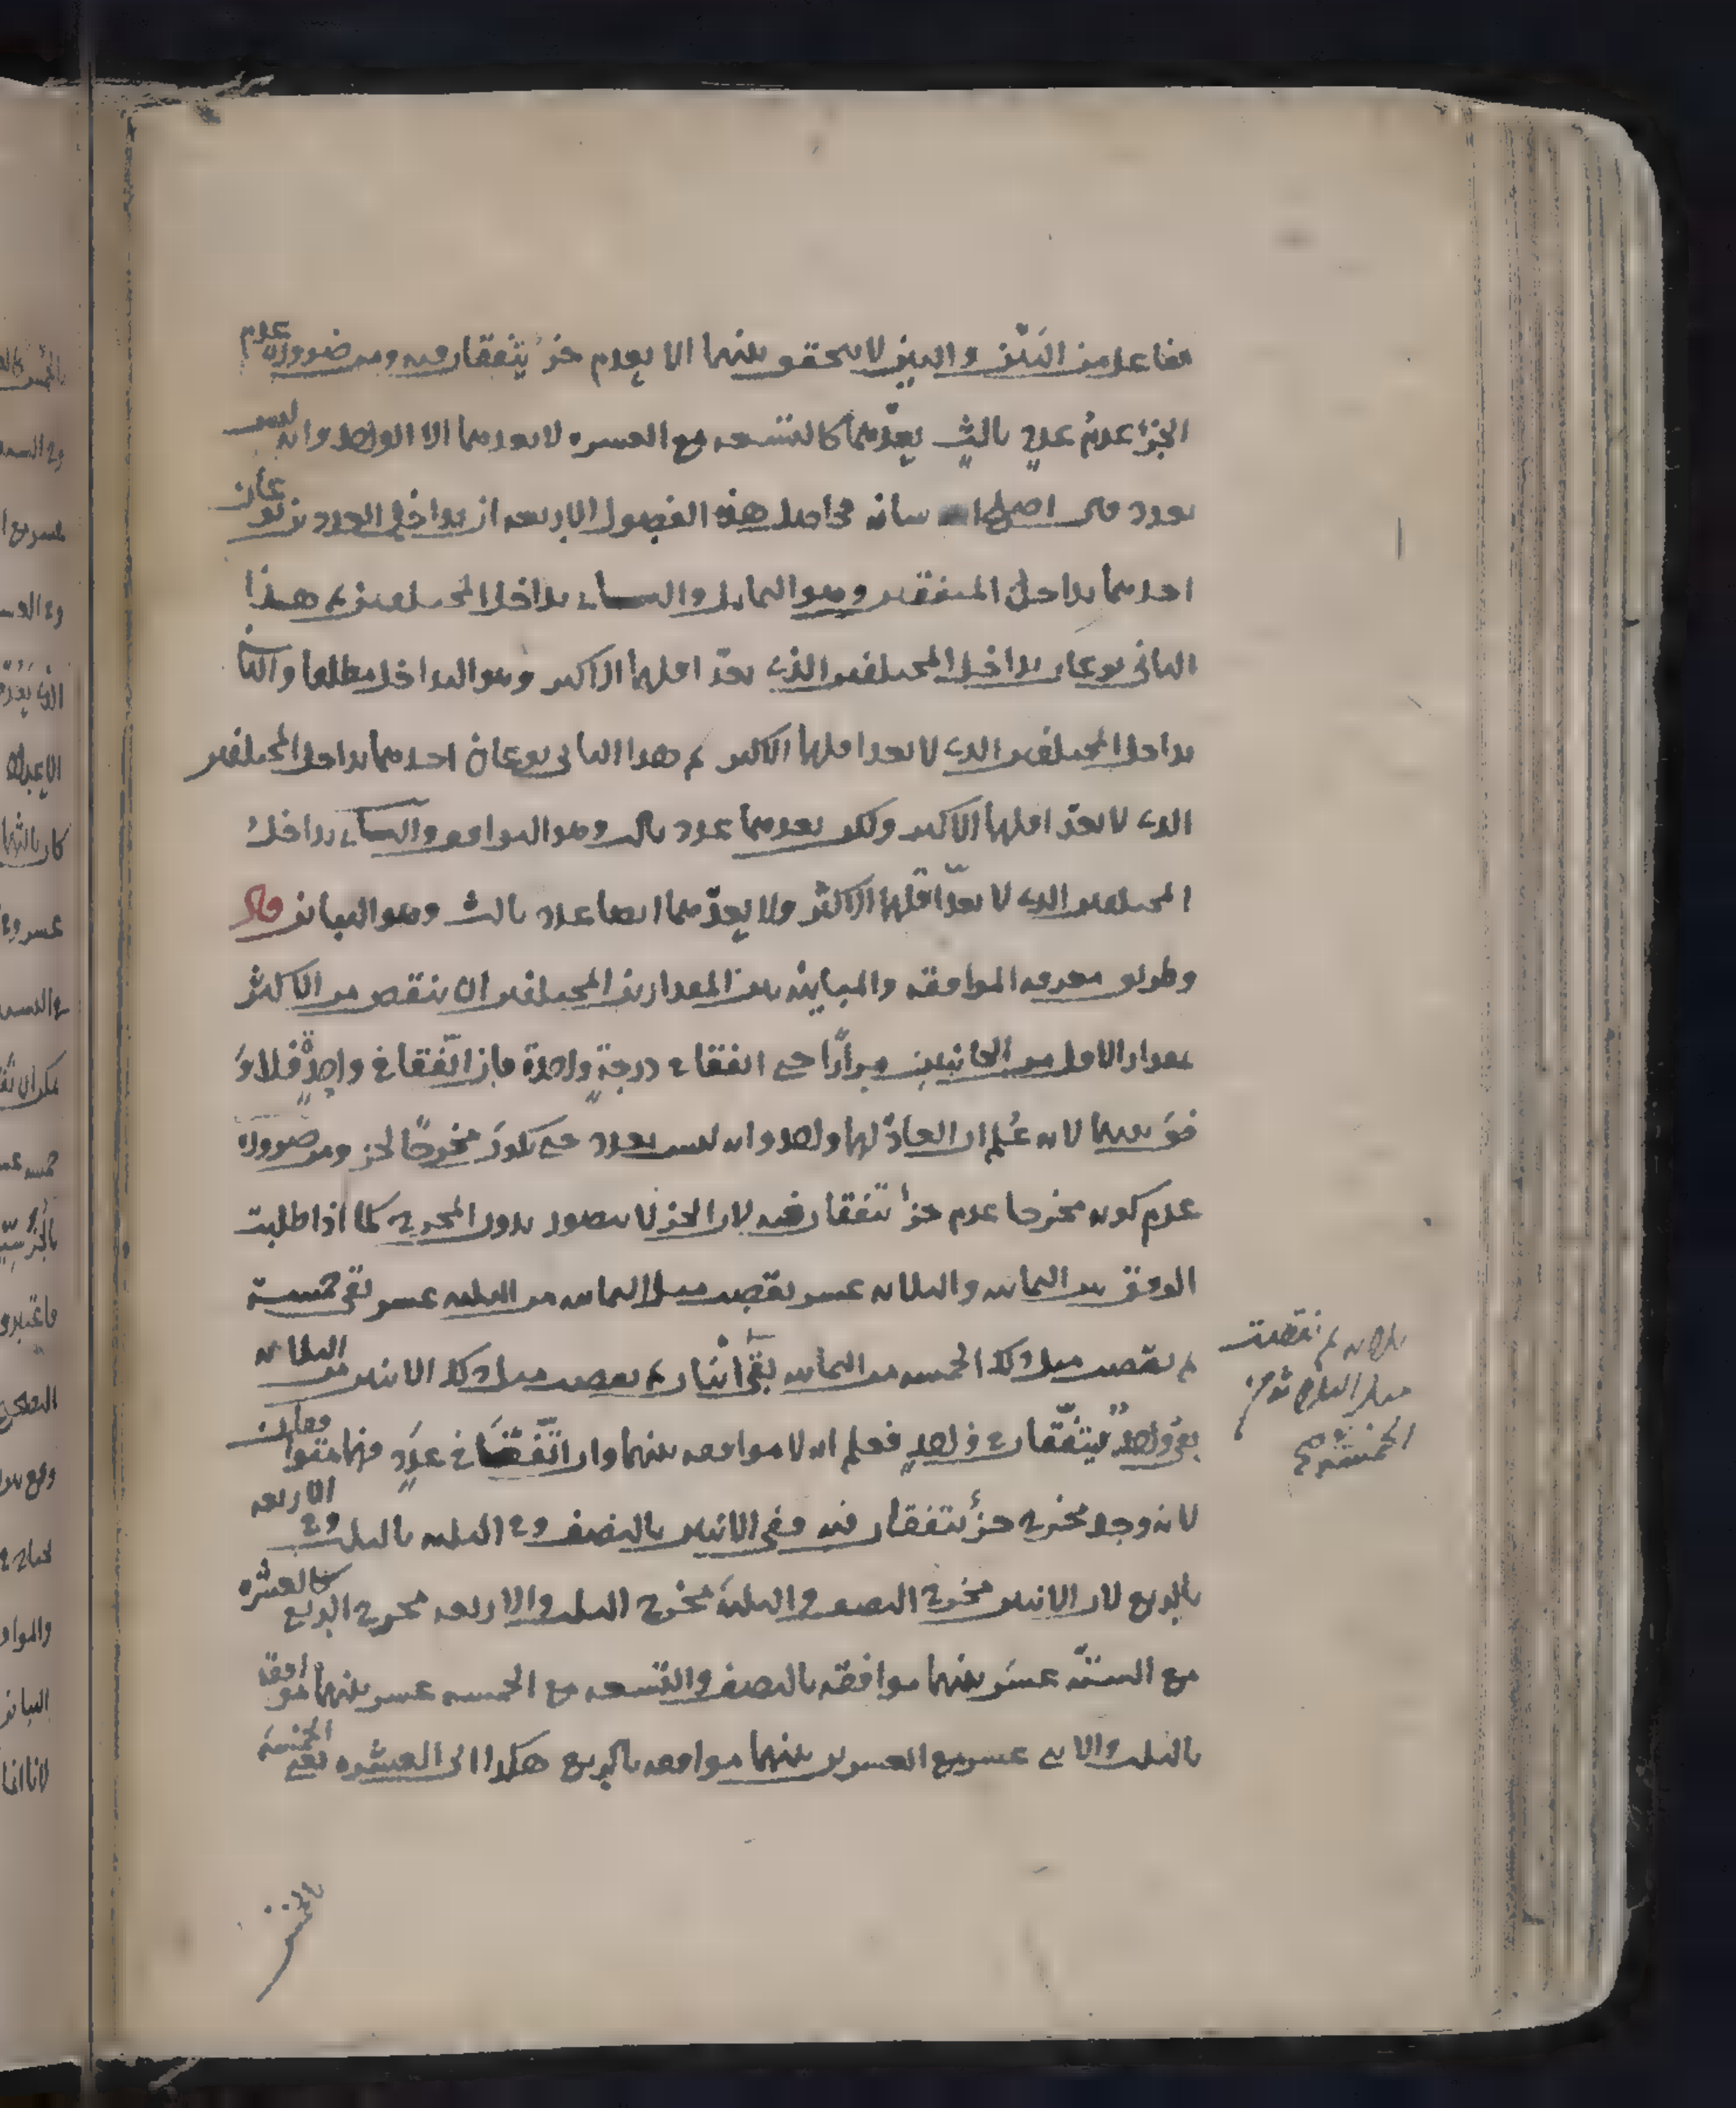 تفاعل من البَيْن والبين لا يتحقق بينهما الا بعدم جزء يتفقان فيه ومن ضرورة عدم
الجزء عدمُ عددٍ ثالثٍ يعدّهما كالتسعه مع العشره لا يعدهما الا الواحد وانه ليس
بعدد قال بيانه محاصل هذه الفصول الاربعه ان تداخل العدد نوعان
احدهما تداخل المتفقين وهو التماثل والثاني تداخل المختلفين ثم هذا
الثاني نوعان تداخل المختلفين الذي يعدّ اقلهما الاكثر وهو التداخل مطلقا والثاني
تداخل المختلفين الذي لا يعد اقلهما الاكثر ثم هذا الثاني نوعان احدهما تداخل المختلفين
الذي لا يعدّ اقلهما الاكثر ولكن يعدهما عدد ثالث وهو التوافق والثاني تداخل
المختلفين الذي لا يعدّ اقلهما الاكثر ولا يعدّهما ايضا عدد ثالث وهو التباين قال
وطريق معرفه الموافقه والمباينه بين المقدارين المختلفين ان ينقص من الاكثر
بمقدار الاقل من الجانبين مرارًا حتى اتفقا في درجةٍ واحدة فان اتّفقا في واحدٍ فلا وَ
فق بينهما لانه عُلم ان العادّ لهما واحد وانه ليس بعدد حتى يكون مخرجًا لجزء ومن ضرورة
عدم كونه مخرجا عدم جزء يتفقان فيه لان الجزء لا يتصور بدون المخرج كما اذا طلبت
الوفق بين الثمانيه والثلاثه عشر نقصت مثل الثمانيه من الثلثه عشر بقي خمسة
ثم نقصت مثل تلك الخمسه من الثمانيه بقي ثلاثه ثم نقصت مثل الثلاثة من الخمسة بقي اثنان ثم نقصت مثل تلك الاثنين من الثلاثه
بقي واحدٌ يتفقان في واحدٍ فعلم انه لا موافقه بينهما وان اتّفقَا في عددٍ فهما متوافقان
لانه وجد مخرج جزء يتفقان فيه ففي الاثنين بالنصف وفي الثلثه بالثلث وفي الاربعه
بالربع لان الاثنين مخرج النصف والثلثه مخرج الثلث والاربعه مخرج الربع كالعشره
مع الستّه عشر بينهما موافقه بالنصف والتسعه مع الخمسه عشر بينهما موافقه
بالثلث والاثني عشر مع العشرين بينهما موافقه بالربع هكذا الى العشره ففي الخمسه
بالخمس